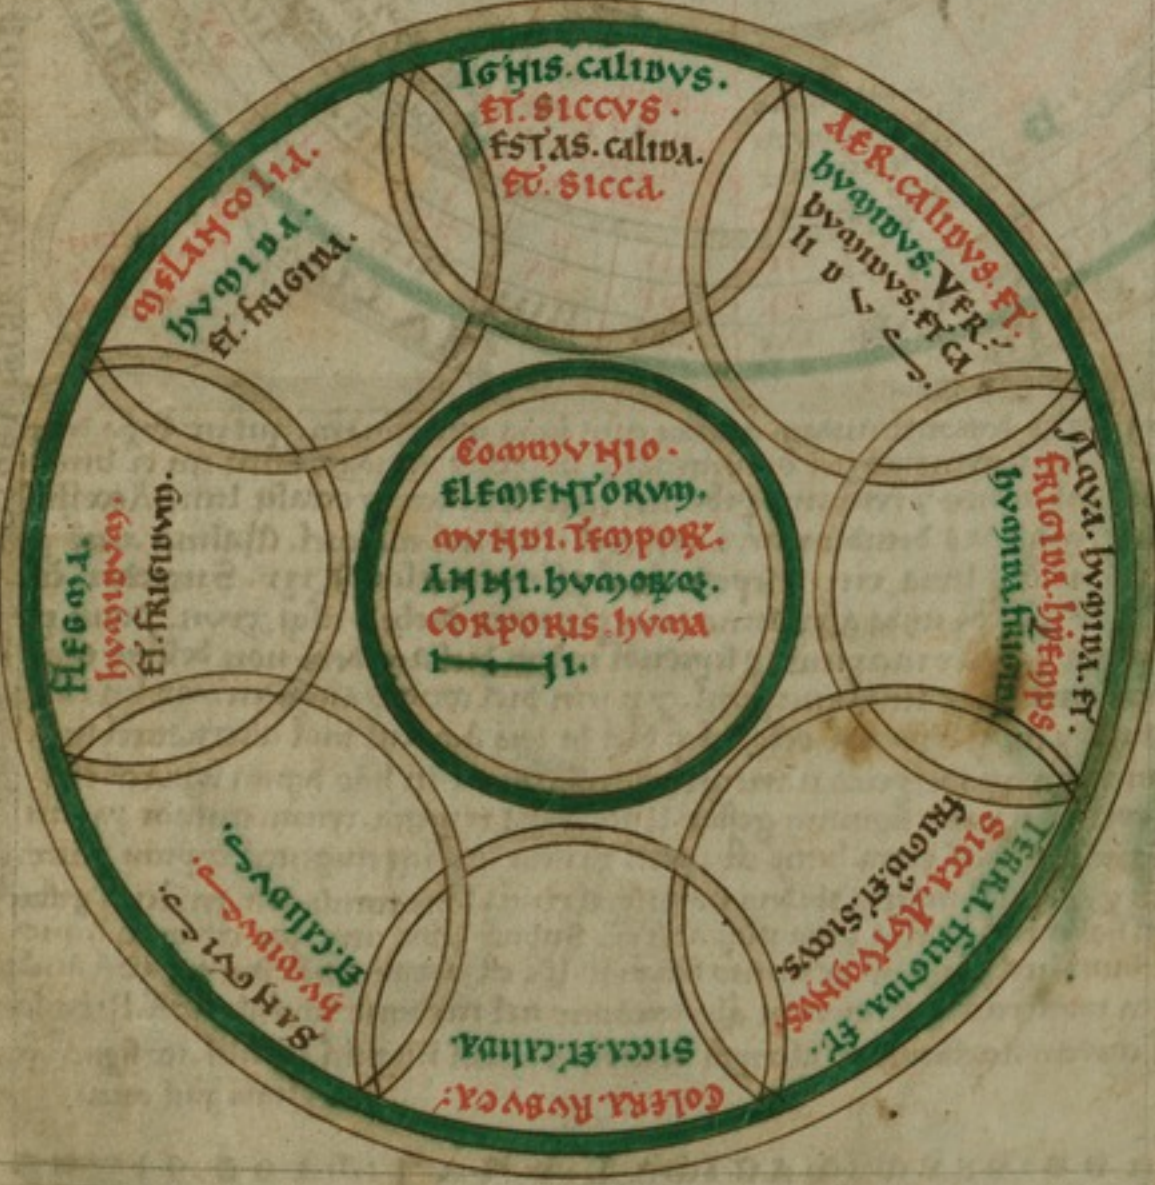 IGNIS. CALIDVS.
ET. SICCVS.
ESTAS. CALIDA.
ET. SICCA.
AER. CALIDVS. ET.
hVMIDVS. VER.
hVMIDVS. ET CA
LIDVS.
AQVA. hVMIDA. ET.
FRIGIDA. hyEMPS
hVMIDA. FRIGIDA
TERRA. FRIGIDA. ET.
SICCA. AVTVMNVS.
FRIGID. ET. SICCVS.
COLERA. RVBVEA:
SICCA. ET. CALIDA.
SANGVIS.
hVMIDVS.
ET. CALIDVS.
FLEGMA.
hVMIDVM.
ET. FRIGIDVM.
MELANCOLIA.
hVMIDA.
ET. FRIGIDA.
COMMVNIO.
ELEMENTORVM.
MVNDI. TEMPORꝜ.
ANNI. hVMORꝜQ.
CORPORIS. hVMA
NI.